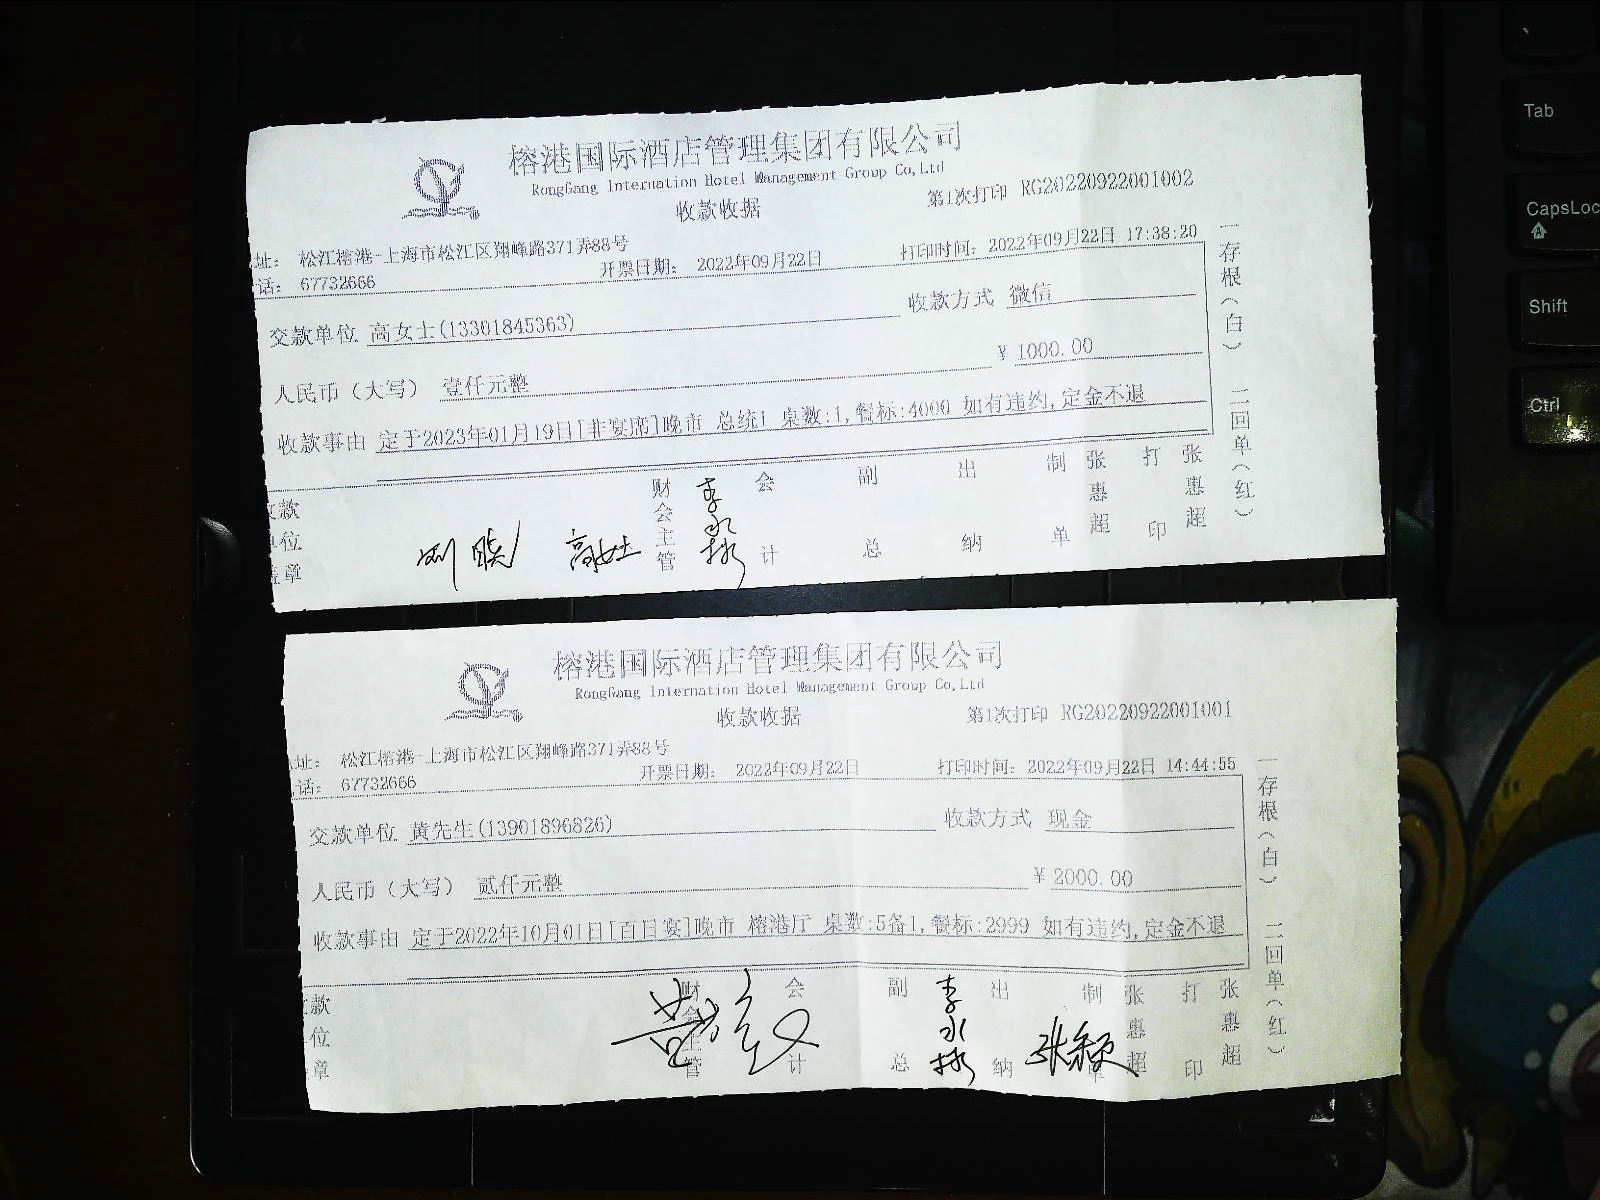 榕港国际酒店管理集团有限公司
RongGang Internation Hotel Management Group Co,Ltd
收款收据
第1次打印 RG20220922001002
址: 松江榕港-上海市松江区翔峰路371弄88号
话: 67732666
开票日期: 2022年09月22日
打印时间: 2022年09月22日 17:38:20
交款单位 高女士(13301845363)
收款方式 微信
人民币（大写） 壹仟元整
¥ 1000.00
收款事由 定于2023年01月19日[非宴席]晚市 总统1 桌数:1,餐标:4000 如有违约,定金不退
一存根(白) 二回单(红)
款
位
章
高女士
财会主管
会计
副总
出纳
制单
张惠超
打印
张惠超
榕港国际酒店管理集团有限公司
RongGang Internation Hotel Management Group Co,Ltd
收款收据
第1次打印 RG20220922001001
址: 松江榕港-上海市松江区翔峰路371弄88号
话: 67732666
开票日期: 2022年09月22日
打印时间: 2022年09月22日 14:44:55
交款单位 黄先生(13901896826)
收款方式 现金
人民币（大写） 贰仟元整
¥ 2000.00
收款事由 定于2022年10月01日[百日宴]晚市 榕港厅 桌数:5备1,餐标:2999 如有违约,定金不退
一存根(白) 二回单(红)
款
位
章
财会主管
会计
副总
出纳
制单
张惠超
打印
张惠超
Tab
CapsLoc
Shift
Ctrl